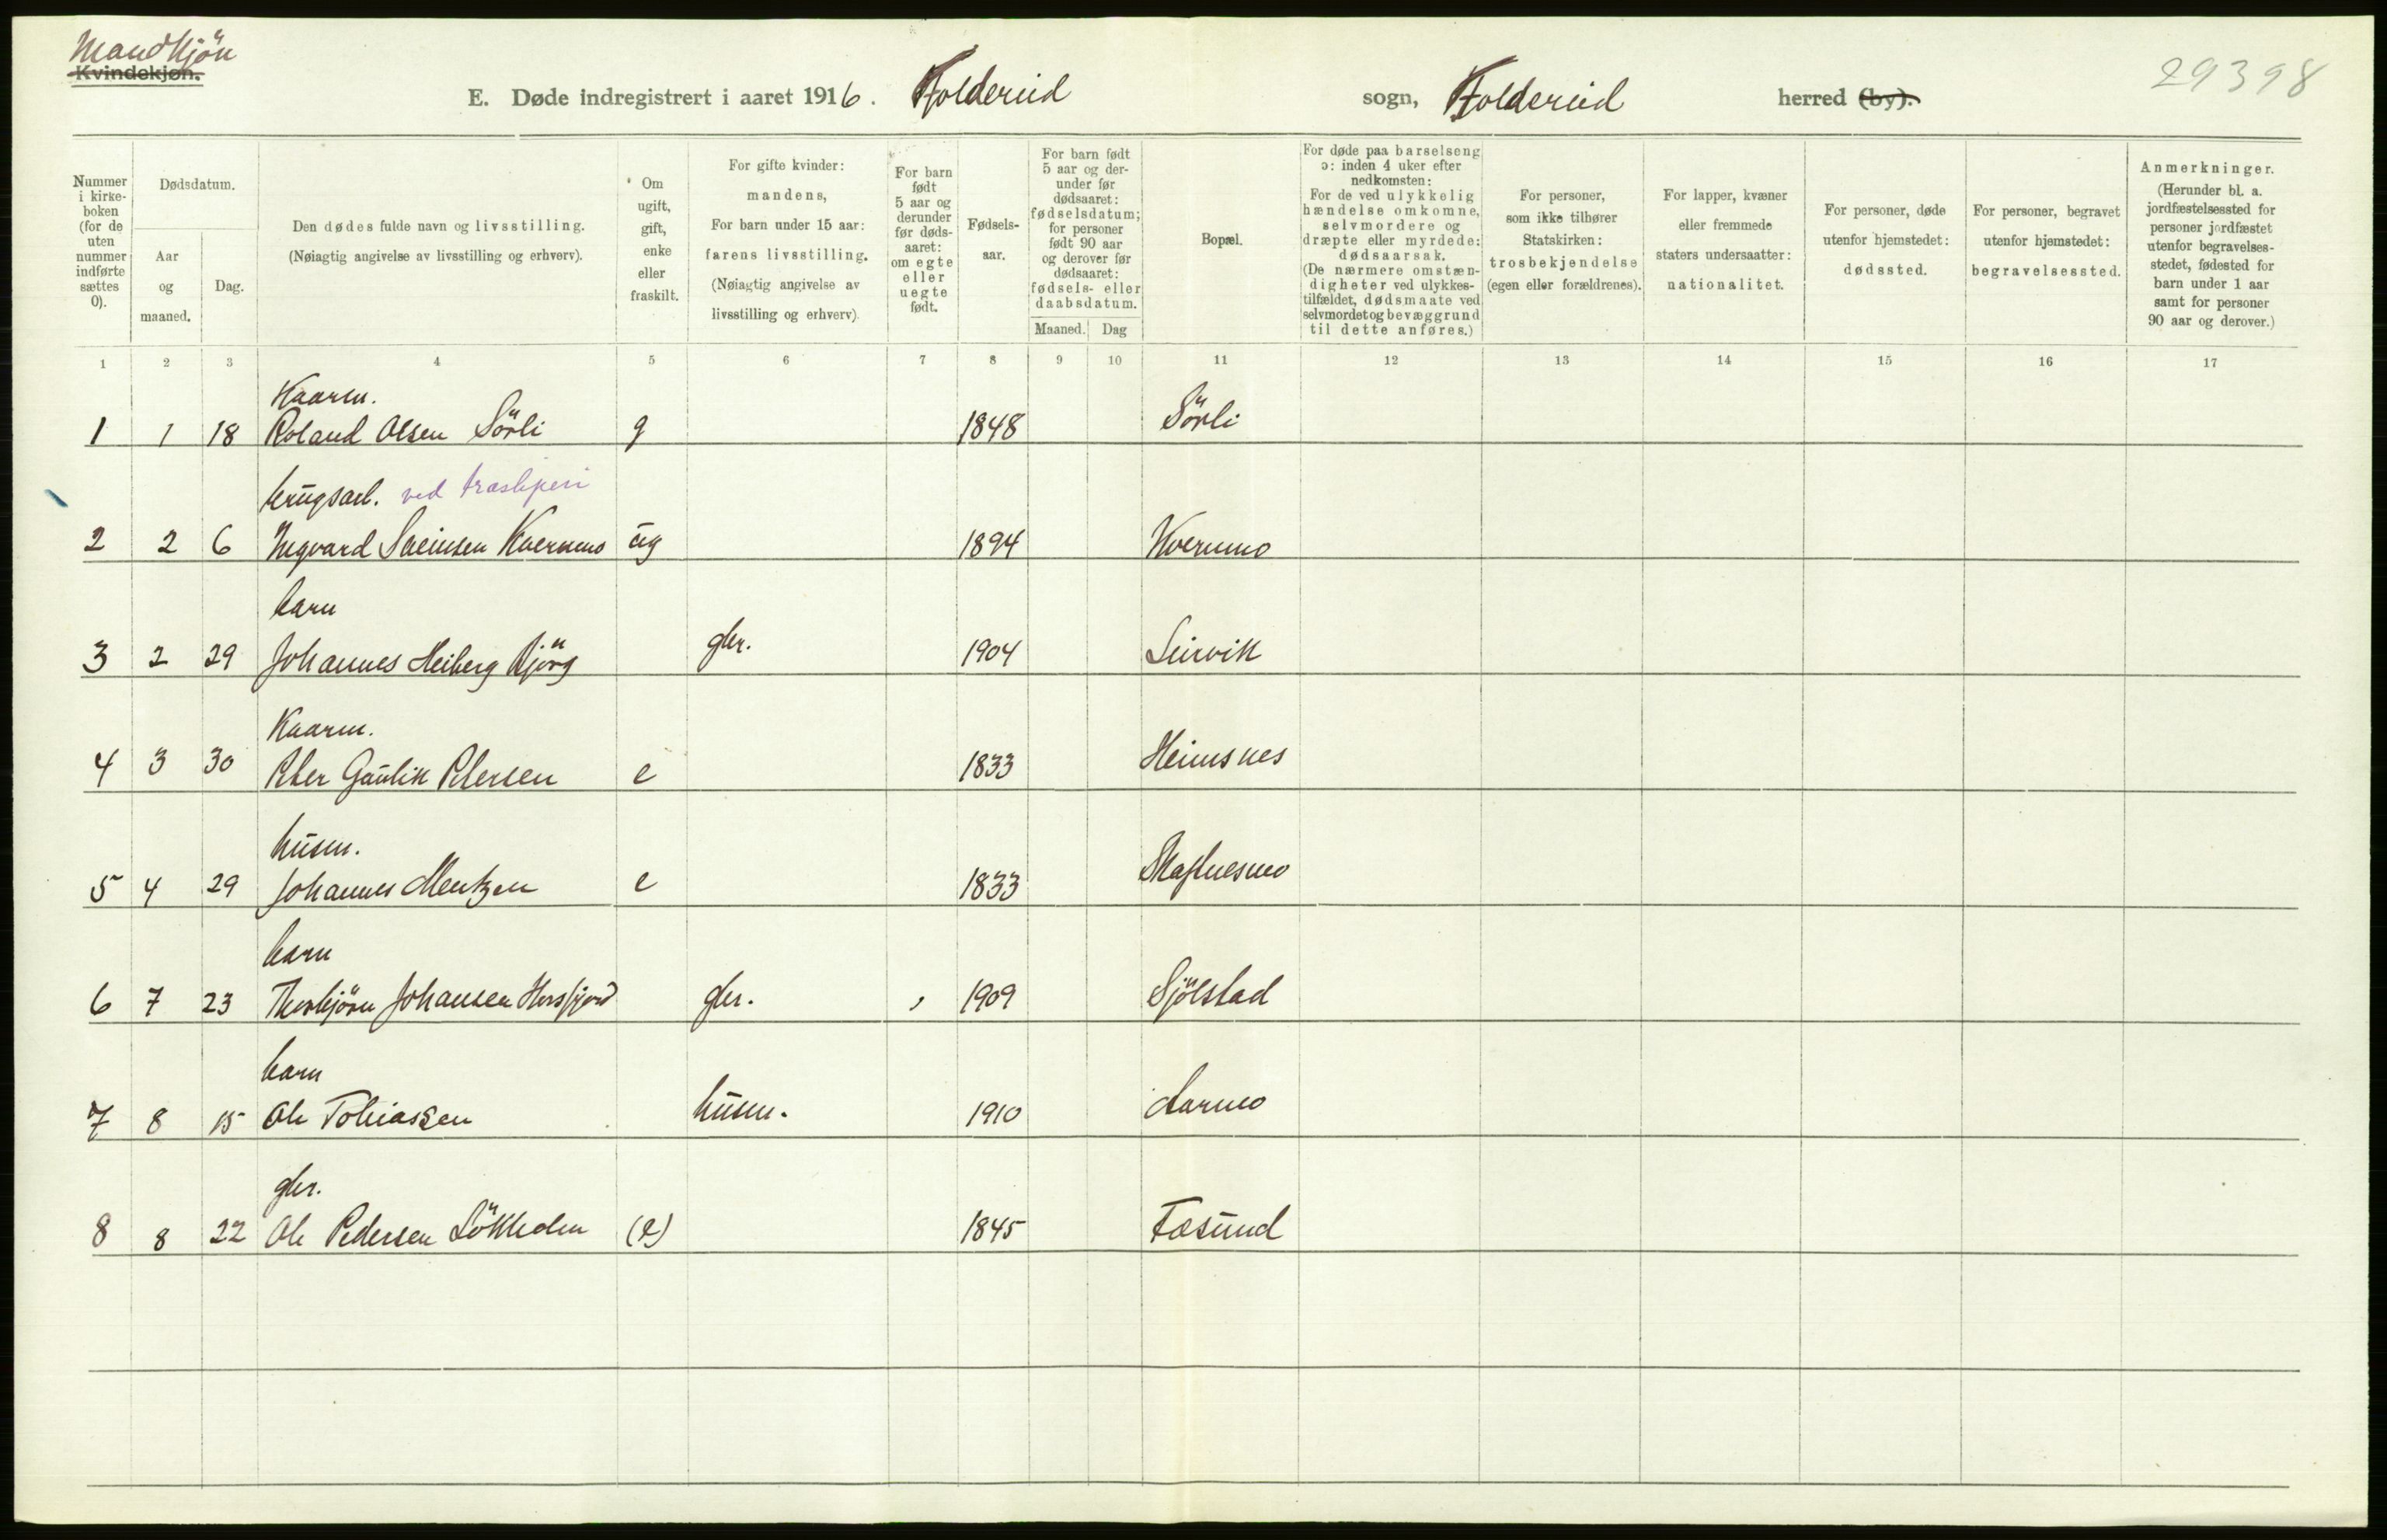 Mandkjön
Kvindekjøn.
29398
E. Døde indregistrert i aaret 1916. Foldereid sogn, Foldereid herred (by).
Nummer i kirke-boken (for de uten nummer indførte sættes 0).
Dødsdatum.
Aar og maaned.
Dag.
Den dødes fulde navn og livsstilling.
(Nøiagtig angivelse av livsstilling og erhverv).
Om ugift, gift, enke eller fraskilt.
For gifte kvinder: mandens,
For barn under 15 aar: farens livsstilling.
(Nøiagtig angivelse av livsstilling og erhverv).
For barn født 5 aar og derunder før døds-aaret: om egte eller uegte født.
Fødsels-aar.
For barn født 5 aar og der-under før dødsaaret: fødselsdatum; for personer født 90 aar og derover før dødsaaret: fødsels- eller daabsdatum.
Maaned.
Dag
Bopæl.
For døde paa barselseng ɔ: inden 4 uker efter nedkomsten:
For de ved ulykkelig hændelse omkomne, selvmordere og dræpte eller myrdede: dødsaarsak.
(De nærmere omstæn-digheter ved ulykkes-tilfældet, dødsmaate ved selvmordet og bevæggrund til dette anføres.)
For personer, som ikke tilhører Statskirken: trosbekjendelse (egen eller forældrenes).
For lapper, kvæner eller fremmede staters undersaatter: nationalitet.
For personer, døde utenfor hjemstedet: dødssted.
For personer, begravet utenfor hjemstedet: begravelsessted.
Anmerkninger.
(Herunder bl. a. jordfæstelsessted for personer jordfæstet utenfor begravelses-stedet, fødested for barn under 1 aar samt for personer 90 aar og derover.)
1 2 3 4 5 6 7 8 9 10 11 12 13 14 15 16 17
Kaarm.
1 1 18 Roland Olsen Sörli g 1848 Sörli
brugsarb. ved træsliperi
2 2 6 Ingvard Sveinsen Kvernmo ug 1894 Kvernmo
barn
3 2 29 Johannes Heiberg Björg gbr. 1904 Leirvik
Kaarm.
4 3 30 Peter Gaulik Petersen e 1833 Heimsnes
husm.
5 4 29 Johannes Mentzen e 1833 Skaflnesmo
barn
6 7 23 Thorbjörn Johansen Horsfjord gbr. , 1909 Sjölstad
barn
7 8 15 Ole Tobiassen husm. 1910 Aarmo
gbr.
8 8 22 Ole Pedersen (e) 1845